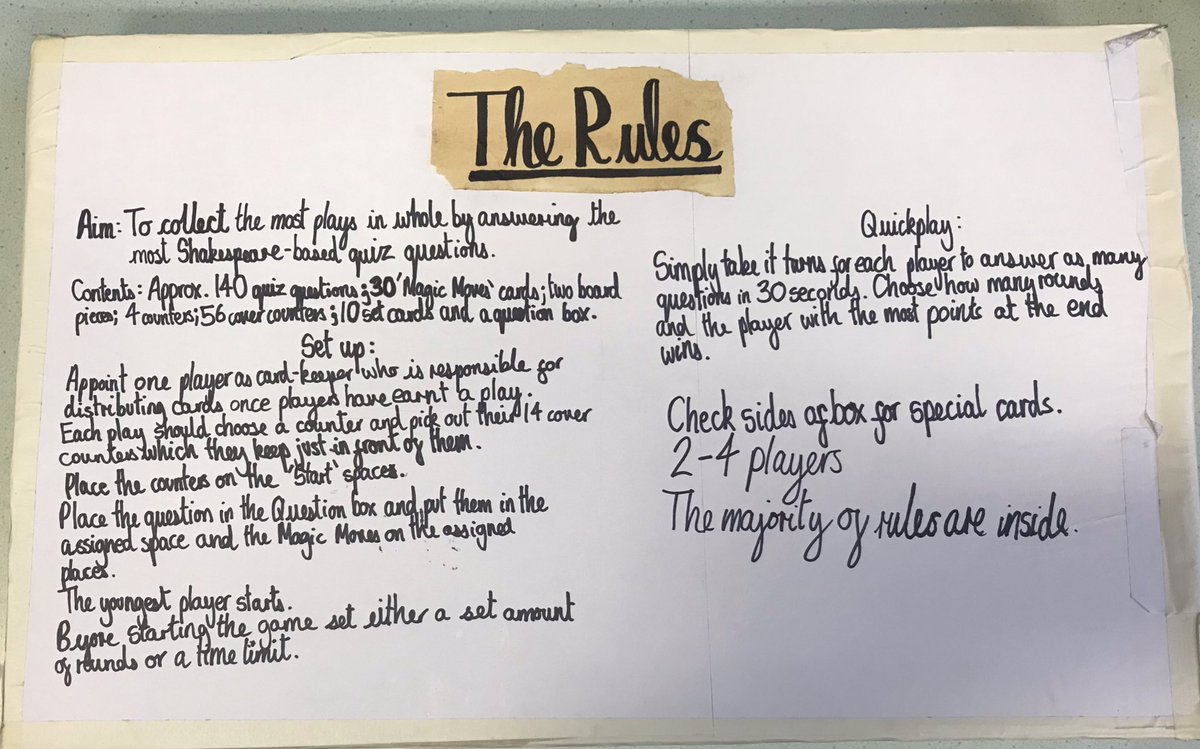 The Rules
Aim: To collect the most plays in whole by answering the
most Shakespeare-based quiz questions.
Contents: Approx. 140 quiz questions; 30 'Magic Moves' cards; two board
pieces; 4 counters; 56 cover counters; 10 set cards and a question box.
Set up:
Appoint one player as card-keeper who is responsible for
distributing cards once players have earnt a play.
Each play should choose a counter and pick out their 14 cover
counters which they keep just in front of them.
Place the counters on the 'Start' spaces.
Place the question in the Question box and put them in the
assigned space and the Magic Moves on the assigned
places.
The youngest player starts.
Before starting the game set either a set amount
of rounds or a time limit.
Quickplay:
Simply take it turns for each player to answer as many
questions in 30 seconds. Choose how many rounds
and the player with the most points at the end
wins.
Check sides of box for special cards.
2-4 players
The majority of rules are inside.